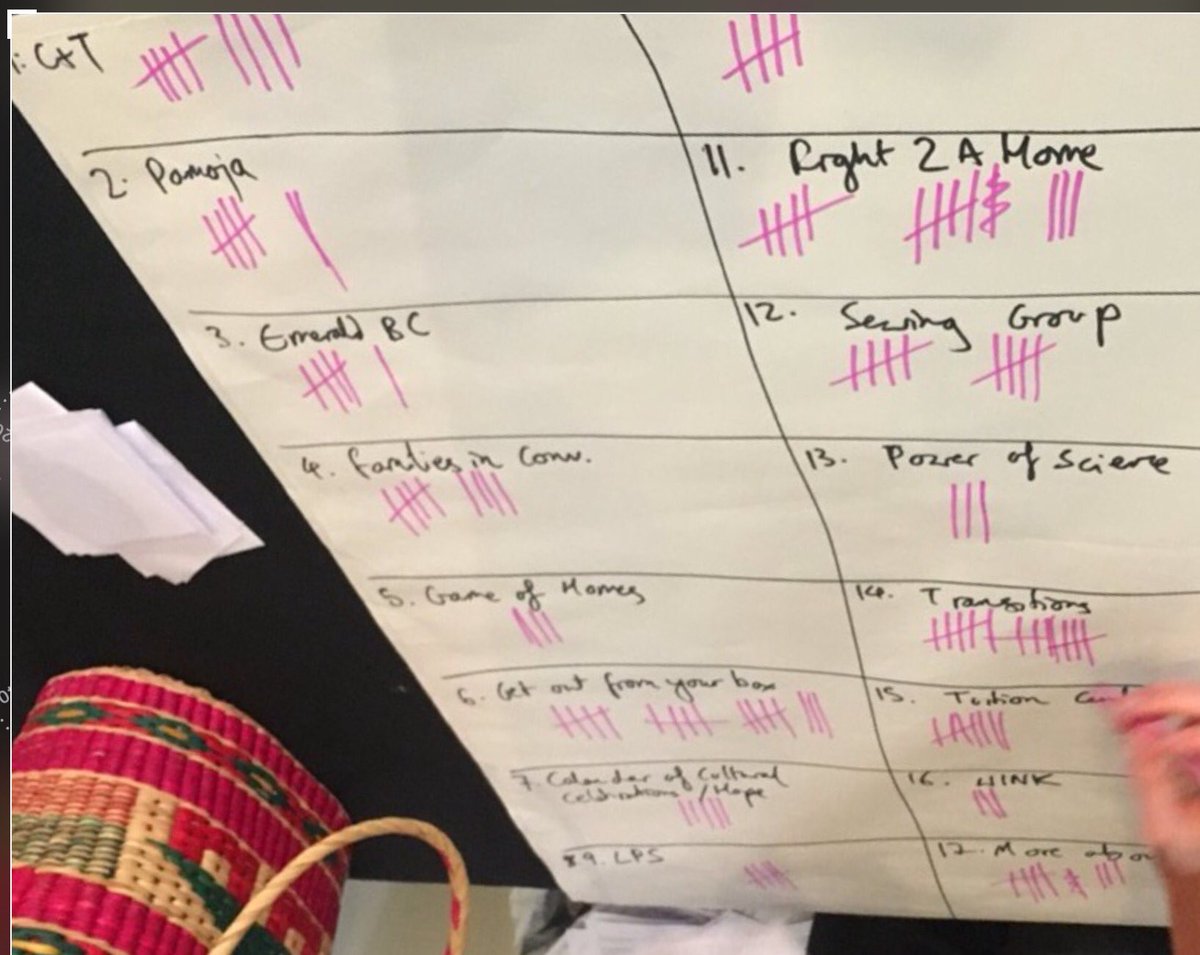 1: C+T
2. Pamoja
3. Emerald BC
4. Families in Conv.
5. Game of Homes
6. Get out from your box
7. Calendar of Cultural
Celebrations / Hope
9. LPS
11. Right 2 A Home
12. Sewing Group
13. Power of Science
14. Transitions
15. Tuition
16. WINK
17. More abo